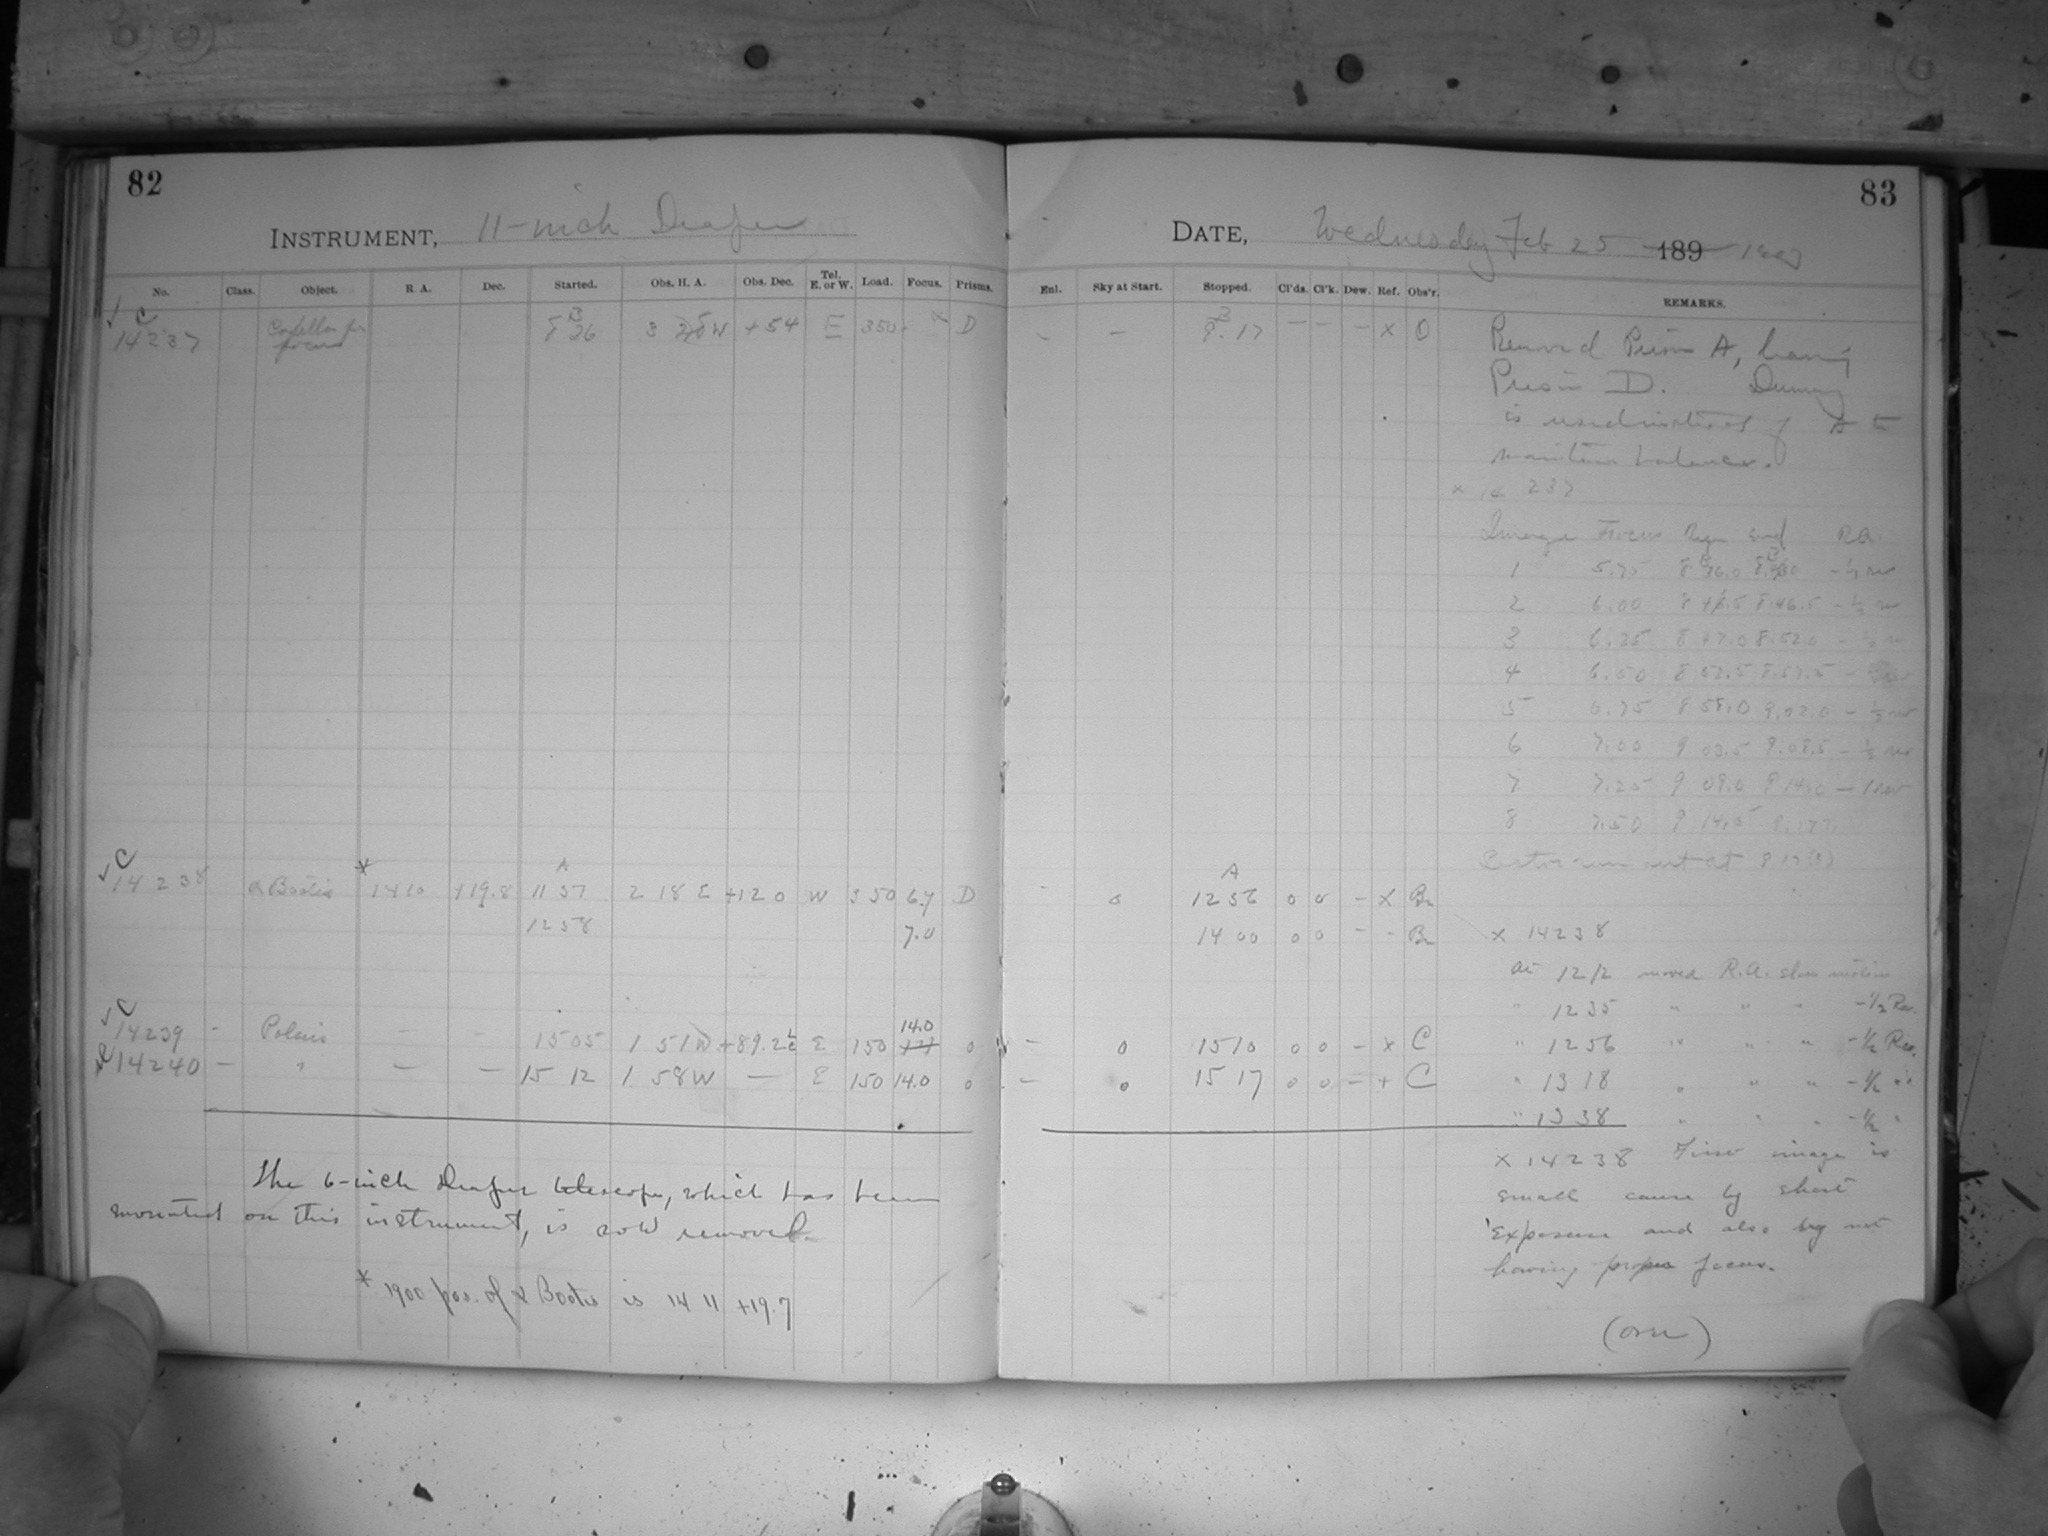 82
INSTRUMENT, 11-inch Draper
No. Class. Object. R. A. Dec. Started. Obs. H. A. Obs. Dec. Tel. E. or W. Load. Focus. Prisms.
C
14237 Capella for focus 8 26 3 W +54 E 350 x D
C
14238 α Bootis * 1410 +19.8 A 1137 2 18 E +120 W 350 6.7 D
1258 7.0
C
14239 - Polaris - - 1505 1 51W +89.2 E 150 14.0 0
14240 - " - - 15 12 1 58W - E 150 14.0 0
The 6-inch Draper telescope, which has been
mounted on this instrument, is now removed.
* 1900 pos. of α Bootis is 14 11 +19.7
83
DATE, Wednesday Feb 25 189
Enl. Sky at Start. Stopped. Cl'ds. Cl'k. Dew. Ref. Obs'r. REMARKS.
- - 9.17 - - - x O
Removed Prism A, leaving
Prism D. Dummy
is used instead of A to
maintain balance.
x 14 237
Image Focus Beg. End R.A.
1 5.75
2 6.00 8.46.5 - ½ rev
3 6.25 8 47.0 8.52.0 - ½ rev
4 6.50 8 52.5 8.57.5 -
5 6.75 8 58.0 9.03.0 - ½ rev
6 7.00 9 03.5 9.08.5 - ½ rev
7 7.25 9 09.0 9 14.0 - 1 rev
8 7.50 9 14.5
run out at
- 0 A 1256 0 0 - x Br
1400 0 0 - - Br
x 14238
At 1212 moved R.A. slow motion
" 1235 " " " -1/2 Rev.
- 0 1510 0 0 - x C
" 1256 " " " -1/2 Rev.
- 0 15 17 0 0 - + C
" 1318 " " " -1/2 "
" 1338 " " " -1/2 "
x 14238 First image is
small cause by short
exposure and also by not
having proper focus.
(over)